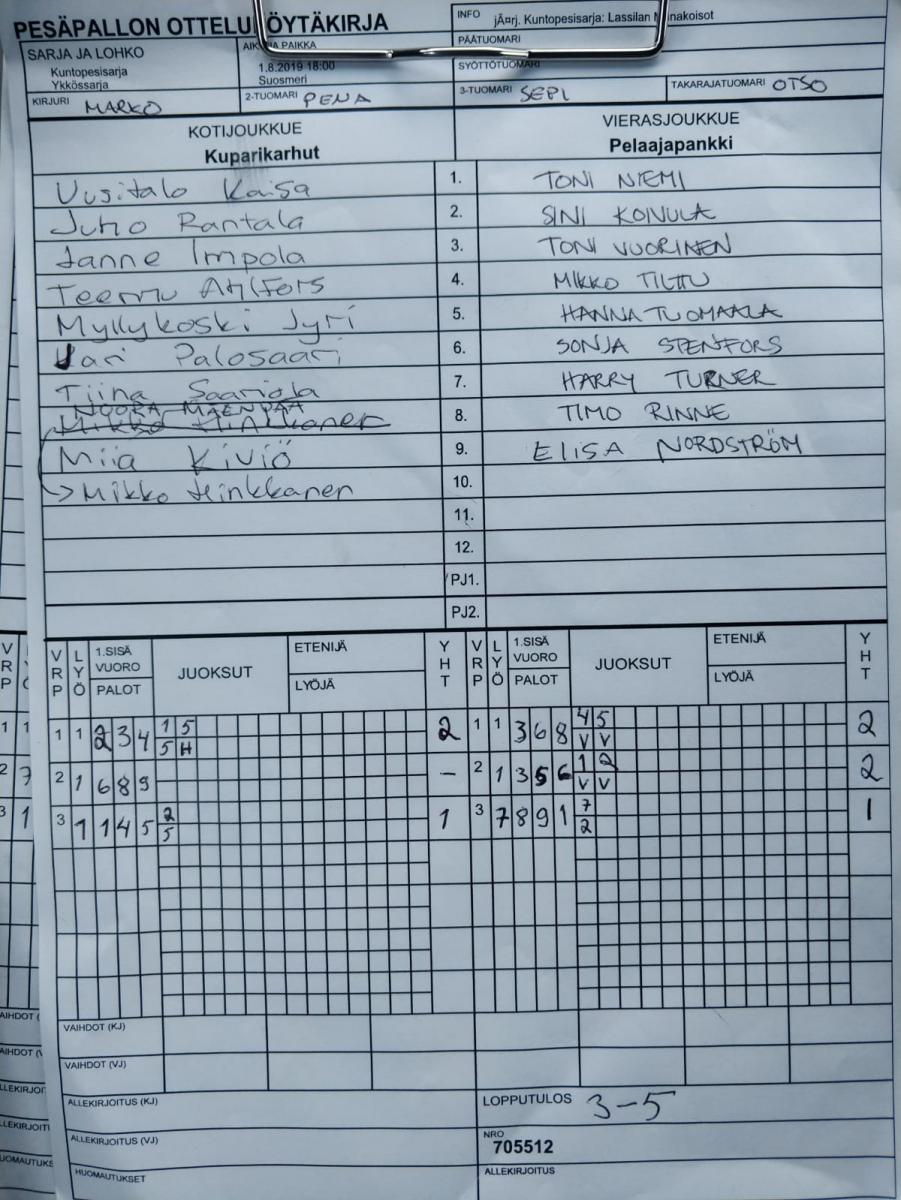 PESÄPALLON OTTELUPÖYTÄKIRJA
INFO jÃ¤rj. Kuntopesisarja: Lassilan Munakoisot
SARJA JA LOHKO
Kuntopesisarja
Ykkössarja
PAIKKA
1.8.2019 18:00
Suosmeri
PÄÄTUOMARI
SYÖTTÖTUOMARI
KIRJURI MARKO
2-TUOMARI PENA
3-TUOMARI SEPI
TAKARAJATUOMARI OTSO
KOTIJOUKKUE
Kuparikarhut
VIERASJOUKKUE
Pelaajapankki
Uusitalo Kaisa 1. TONI NIEMI
Juho Rantala 2. SINI KOIVULA
Janne Impola 3. TONI VUORINEN
Teemu Ahlfors 4. MIKKO TILTTU
Myllykoski Jyri 5. HANNA TUOMAALA
Jari Palosaari 6. SONJA STENFORS
Tiina Saariola 7. HARRY TURNER
NOORA MÄENPÄÄ
Mikko Hinkkanen 8. TIMO RINNE
Miia Kiviö 9. ELISA NORDSTRÖM
-> Mikko Hinkkanen 10.
11.
12.
PJ1.
PJ2.
VRP LYÖ 1.SISÄ VUORO PALOT JUOKSUT ETENIJÄ LYÖJÄ YHT VRP LYÖ 1.SISÄ VUORO PALOT JUOKSUT ETENIJÄ LYÖJÄ YHT
1 1 2 3 4 1 5 2 1 1 3 6 8 4 5 2
5 H V V
2 1 6 8 9 – 2 1 3 5 6 1 2 2
V V
3 1 1 4 5 2 1 3 7 8 9 1 7 1
5 2
VAIHDOT (KJ)
VAIHDOT (VJ)
ALLEKIRJOITUS (KJ)
LOPPUTULOS 3-5
ALLEKIRJOITUS (VJ)
NRO
705512
HUOMAUTUKSET
ALLEKIRJOITUS